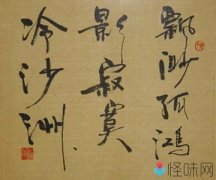 飘渺孤鸿
影寂寞
冷沙洲
怪味网